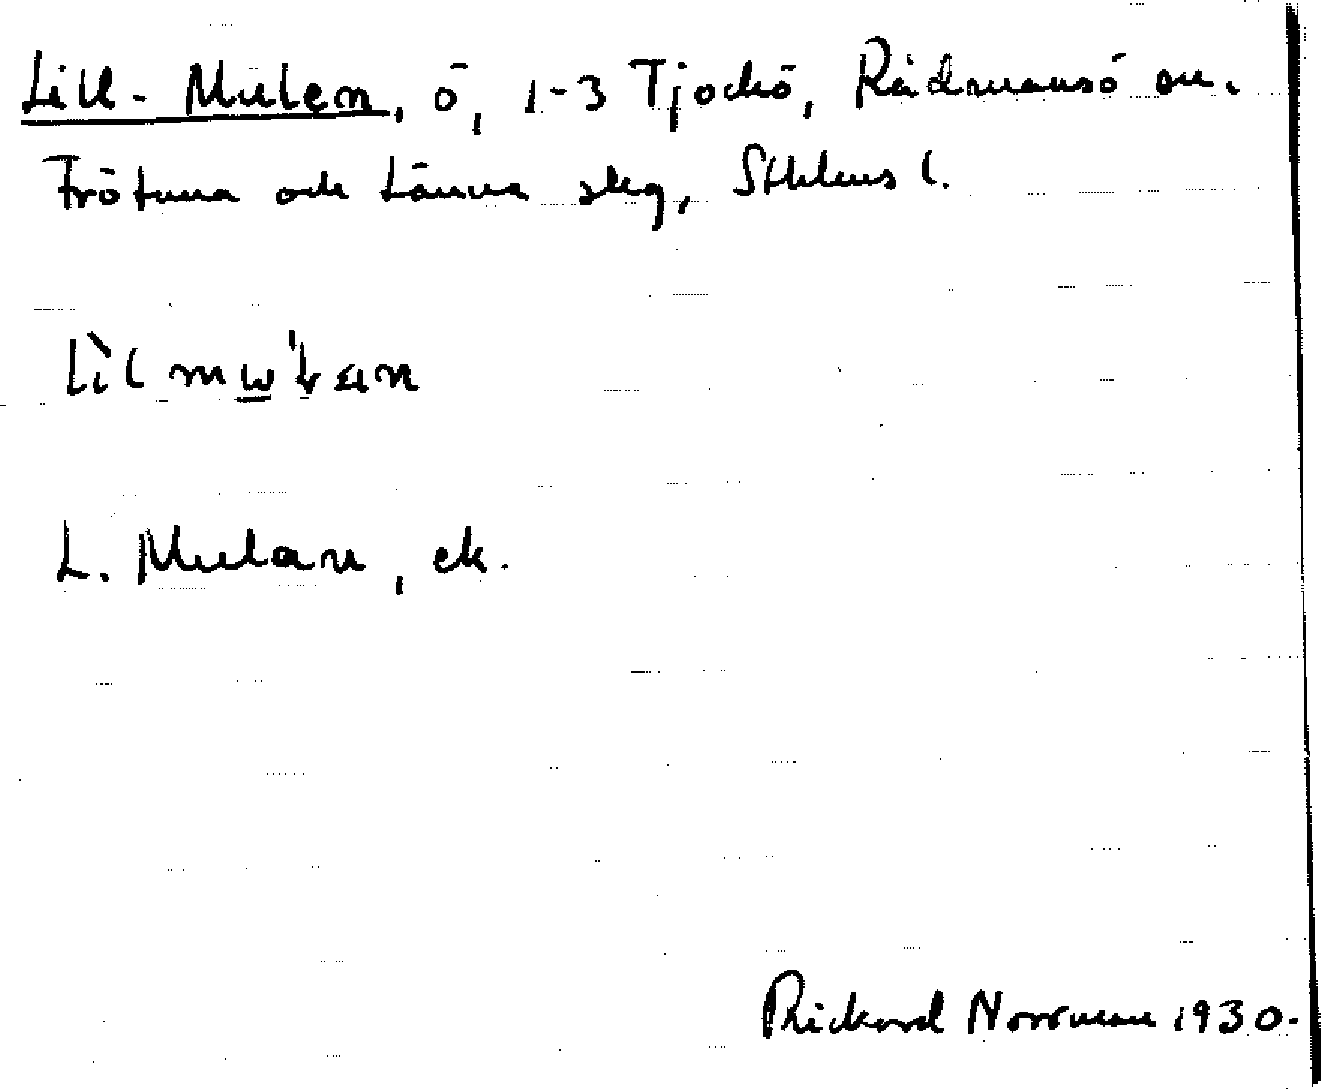 Lill-Mulen, ö, 1-3 Tjockö, Rådmansö sn.
Frötuna och Länna skg, Sthlms l.
L. Mulan, ek.
Rickard Norrman 1930.